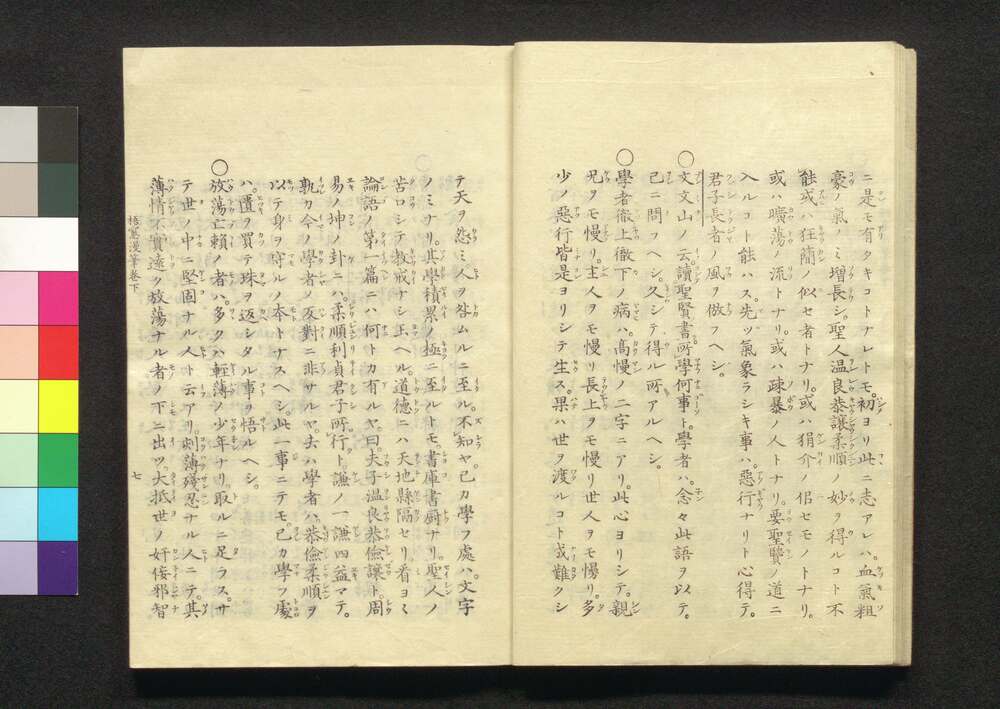 ニ是モ有タキコトナレトモ。初ヨリ此ニ志アレハ。血氣粗
豪ノ氣ノミ増長シ。聖人温良恭讓柔順ノ妙ヲ得ルコト不
能。或ハ狂簡ノ似セ者トナリ。或ハ狷介ノ似セモノトナリ。
或ハ曠蕩ノ流トナリ。或ハ疎暴ノ人トナリ。要聖賢ノ道ニ
入ルコト能ハス。先ツ氣象ラシキ事ハ。惡行ナリト心得テ。
君子長者ノ風ヲ倣フヘシ。
〇文文山ノ云。讀聖賢書所學何事ト。學者ハ。念々此語ヲ以テ。
己ニ問フヘシ。久シテ得ル所アルヘシ。
〇學者徹上徹下ノ病ハ。高慢ノ二字ニアリ。此心ヨリシテ。親
兄ヲモ慢リ。主人ヲモ慢リ長上ヲモ慢リ世人ヲモ慢リ。多
少ノ惡行皆是ヨリシテ生ス。果ハ世ヲ渡ルコト或難クシ
テ天ヲ怨ミ人ヲ咎ムルニ至ル。不知ヤ。己カ學フ處ハ。文字
ノミナリ。其學積累ノ極ニ至ルトモ。書庫書厨ナリ。聖人ノ
苦ロシテ教戒ナシ玉ヘル。道德ニハ天地縣隔セリ。看ヨミ
論語ノ第一篇ニハ何トカ有ルヤ。曰。夫子温良恭儉讓ト。周
易ノ坤ノ卦ニハ。柔順利貞君子所行ト謙ノ一謙四益マテ。
孰カ今ノ學者ノ反對ニ非サルヤ。去ハ學者ハ。恭儉柔順ヲ
以テ身ヲ守ルノ本トナスヘシ。此一事ニテモ。己カ學フ處
ハ。匱ヲ買テ珠ヲ返シタル事ヲ悟ルヘシ。
〇放蕩亡賴ノ者ハ。多クハ輕薄ノ少年ナリ。取ルニ足ラス。サ
テ世ノ中ニ堅固ナル人ト云アリ。刻薄殘忍ナル人ニテ。其
薄情不實遠ク放蕩ナル者ノ下ニ出ツ。大抵世ノ奸佞邪智
梧窻漫筆卷下
七